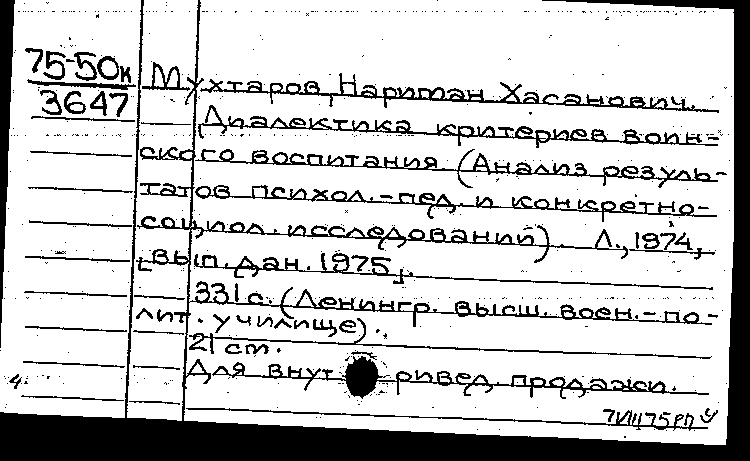 75-50к
3647
Мухтаров, Нариман Хасанович.
Диалектика критериев воин-
ского воспитания (Анализ резуль-
татов психол.-пед. и конкретно-
социол. исследований). Л., 1974,
[вып. дан. 1975].
331 с. (Ленингр. высш. воен.-по-
лит. училище).
21 см.
Для внут ривед. продажи.
4.